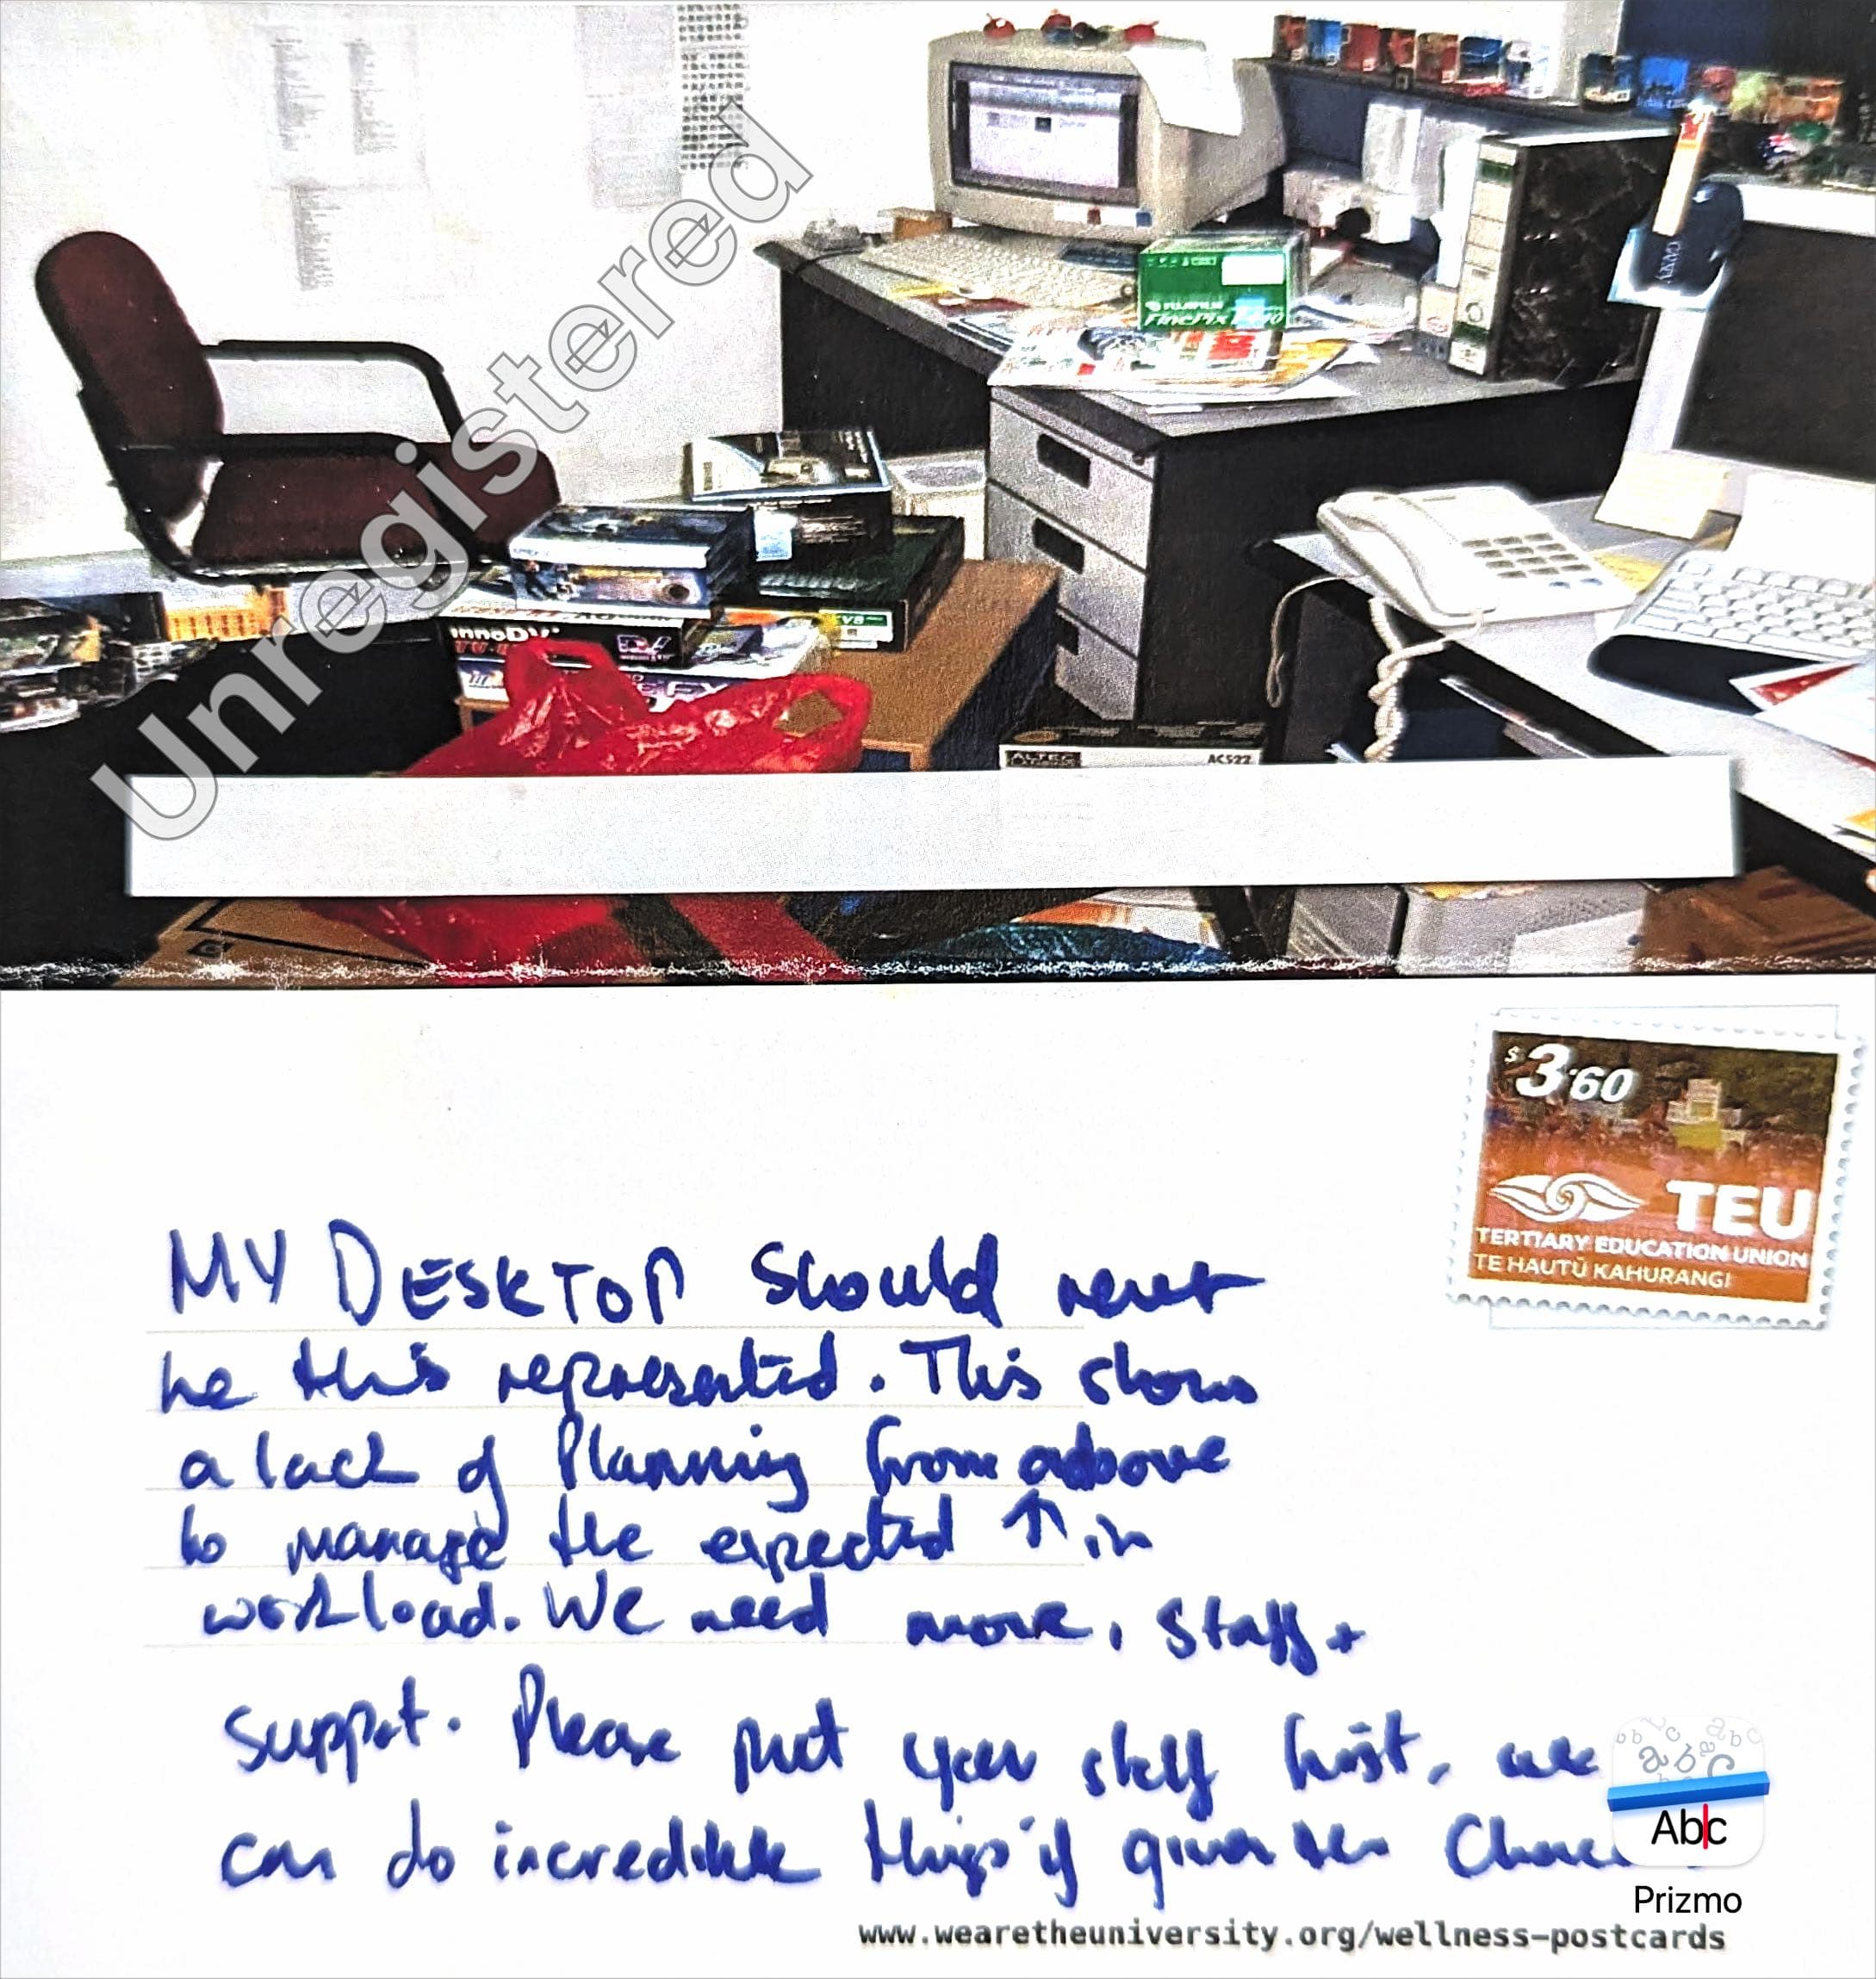 Unregistered
FUJIFILM
FinePix
innoDV
DV
ALTEC
AC522
$3.60
TEU
TERTIARY EDUCATION UNION
TE HAUTŪ KAHURANGI
MY DESKTOP should never
be this represented. This shows
a lack of Planning from above
to manage the expected ↑ in
workload. We need more, staff +
support. Please put your staff first, we
can do incredible things if given the
Abc
Prizmo
www.wearetheuniversity.org/wellness-postcards